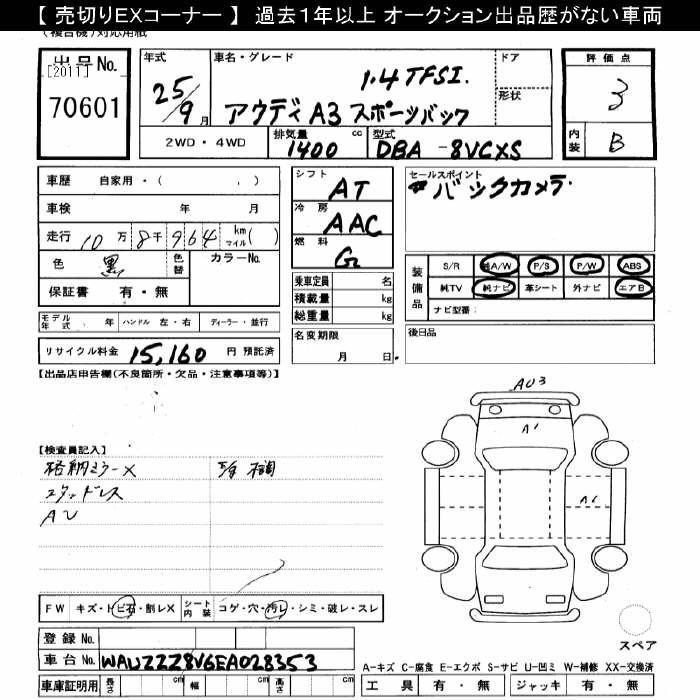 【 売切りEXコーナー 】 過去1年以上 オークション出品歴がない車両
(複合機)対応用紙
出品 No.
[2011]
70601
年式
25/9月
車名・グレード
1.4 TFSI.
アウディ A3 スポーツバック
ドア
形状
評価点
3
内装
B
2WD・4WD
排気量
1400
cc
型式
DBA -8VCXS
車歴 自家用・( , )
車検 年 月
走行 10万 8千 9 6 4 km マイル ( )
色 黒 色替 カラーNo.
保証書 有・無
シフト
AT
冷房
AAC
燃料
G
乗車定員 名
積載量 kg
総重量 kg
セールスポイント
#バックカメラ
装備品
S/R 純A/W P/S P/W ABS
純TV 純ナビ 革シート 外ナビ エアB
ナビ型番:
モデル年式 年 ハンドル 左・右 ディーラー・並行
名変期限
月 日
後日品
リサイクル料金 15,160 円 預託済
【出品店申告欄(不良箇所・欠品・注意事項等)】
AU3
A1
A1
【検査員記入】
格納ミラーX
スタッドレス
AU
FW キズ・トビ石・割レX シート内装 コゲ・穴・汚レ・シミ・破レ・スレ
スペア
登録 No.
車台 No. WAUZZZ8V6EA028353
A-キズ C-腐食 E-エクボ S-サビ U-凹ミ W-補修 XX-交換済
車庫証明用 長さ cm 幅 cm 高さ cm
工具 有・無 ジャッキ 有・無